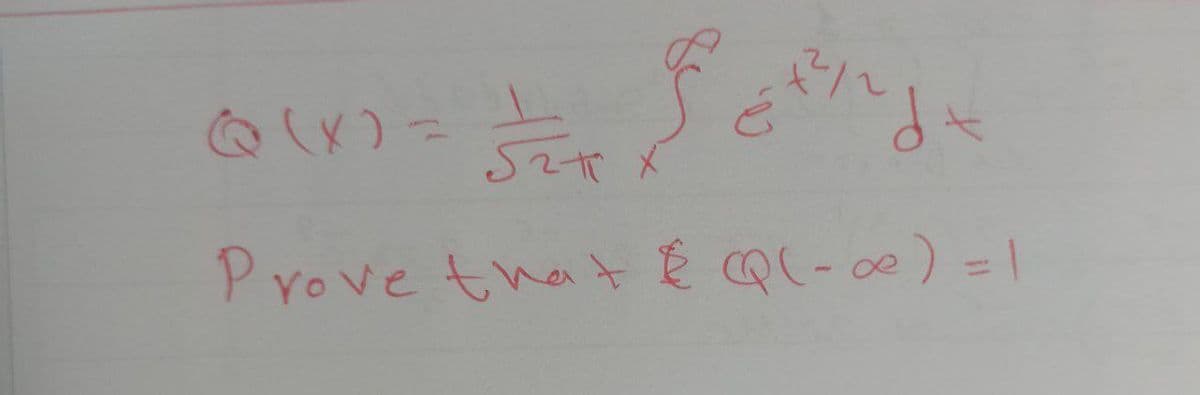 Q(x) = 1/√2π ∫ₓ^∞ e^-t²/2 dt
Prove that Q(-∞) = 1